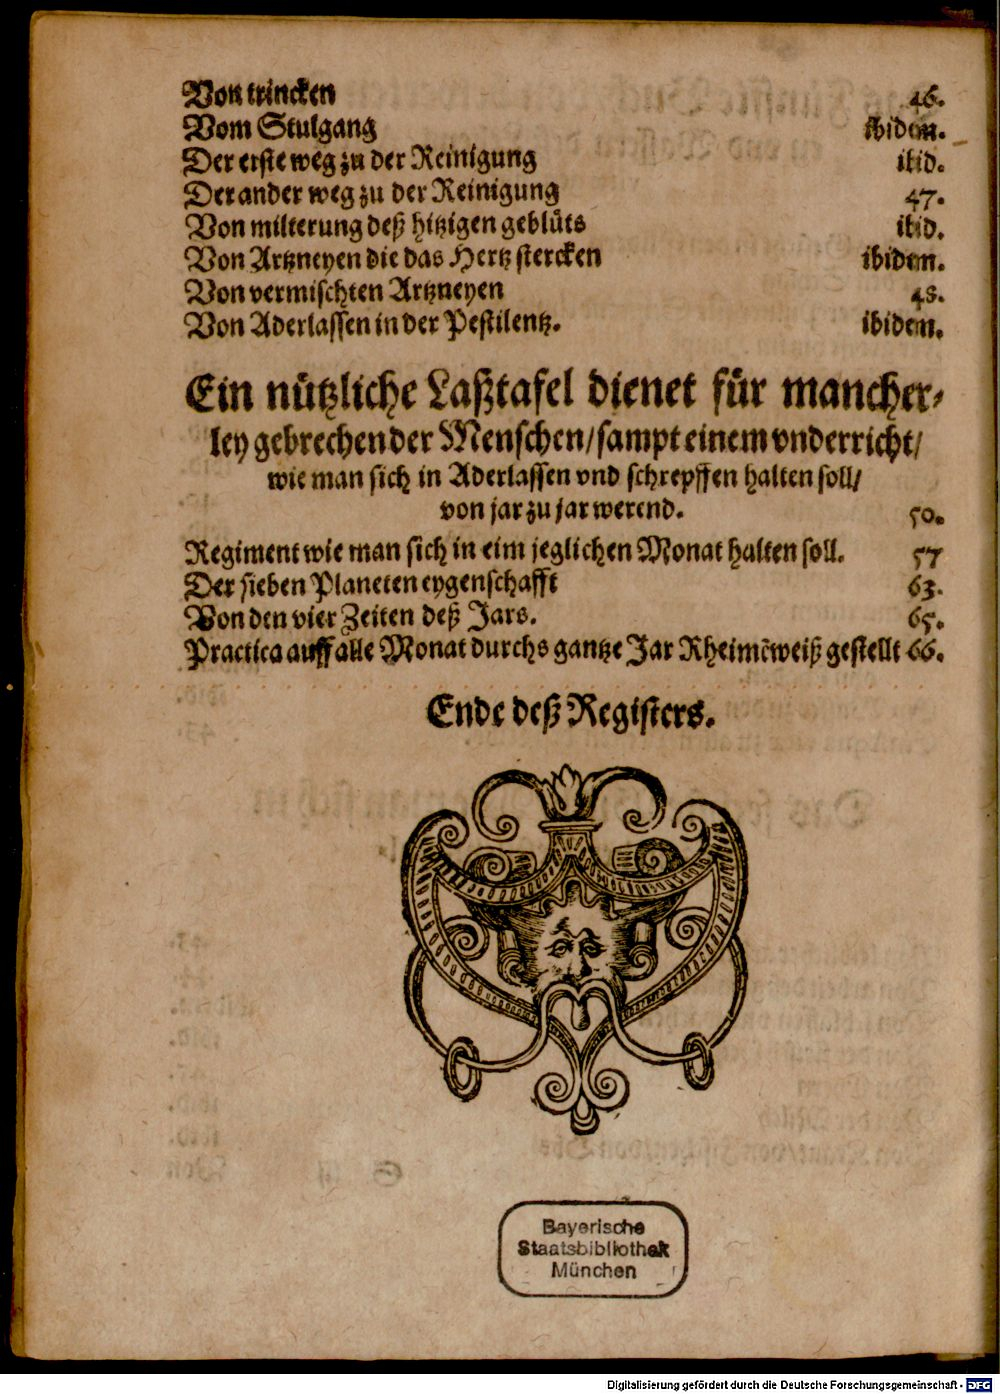 Von trincken 46.
Vom Stulgang ibidem.
Der erste weg zu der Reinigung ibid.
Der ander weg zu der Reinigung 47.
Von milterung deß hitzigen geblüts ibid.
Von Artzneyen die das Hertz stercken ibidem.
Von vermischten Artzneyen 48.
Von Aderlassen in der Pestilentz. ibidem.
Ein nützliche Laßtafel dienet für mancher-
ley gebrechen der Menschen/ sampt einem vnderricht/
wie man sich in Aderlassen vnd schrepffen halten soll/
von jar zu jar werend. 50.
Regiment wie man sich in eim jeglichen Monat halten soll. 57
Der sieben Planeten eygenschafft 63.
Von den vier Zeiten deß Jars. 65.
Practica auff alle Monat durchs gantze Jar Rheimẽweiß gestellt 66.
Ende deß Registers.
Bayerische
Staatsbibliothek
München
Digitalisierung gefördert durch die Deutsche Forschungsgemeinschaft - DFG